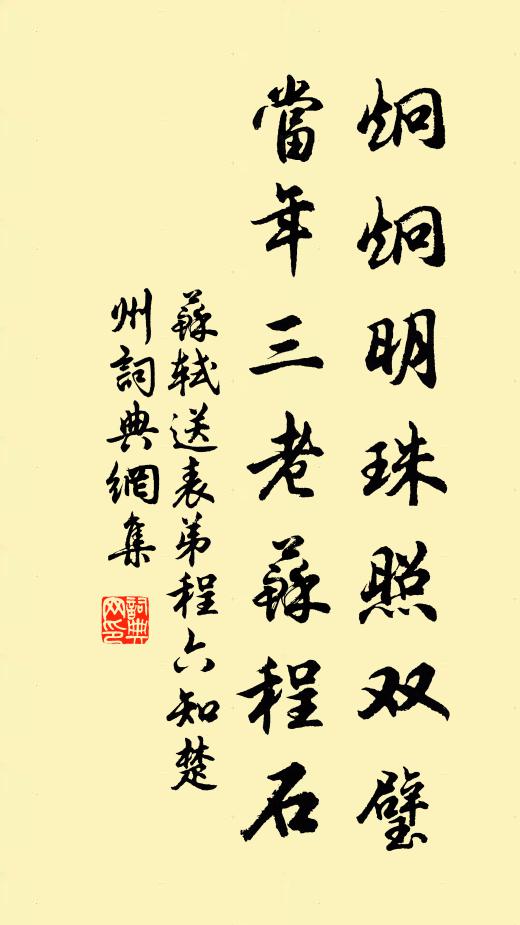 炯炯明珠照双璧
當年三老蘇程石
蘇軾送表弟程六知楚
州詞典網集
詞典网印